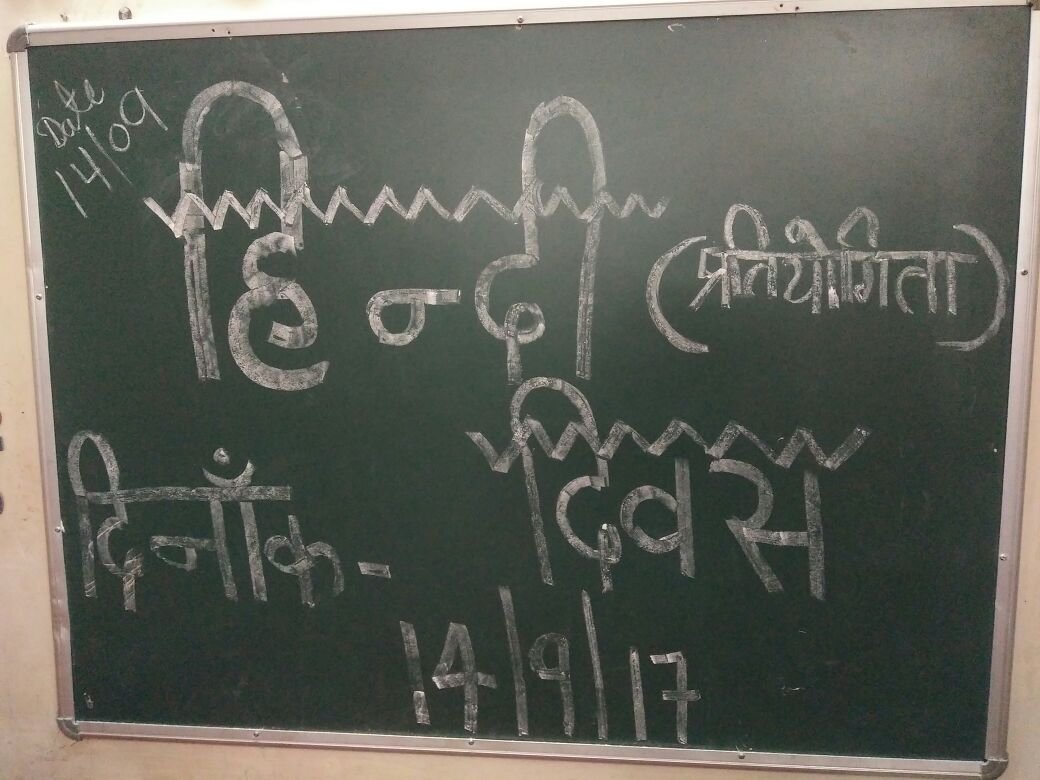 Date
14/09
हिन्दी (प्रतियोगिता)
दिवस
दिनाँक -
14/9/17